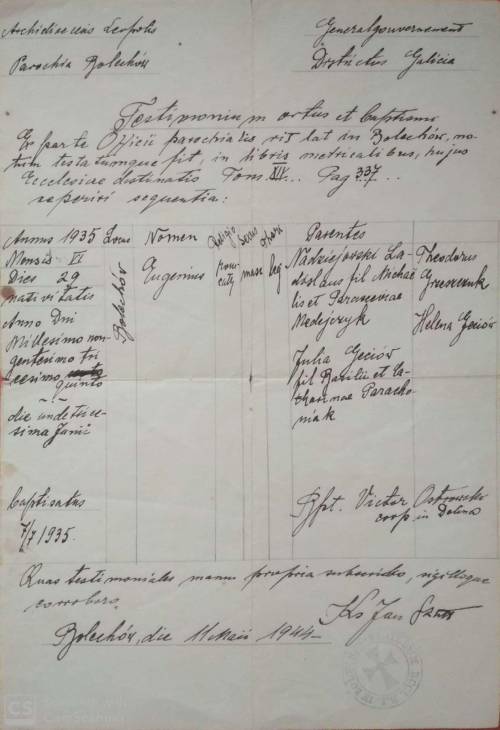 Archidioecesis Leopolis
Generalgouvernement
Parochia Bolechów
Districtus Galicia
Testimonium ortus et baptismi
Ex parte Officii parochialis rit. lat. in Bolechów, no-
tum testatumque fit, in libris metricalibus, hujus
Ecclesiae destinatis Tom. XIV... Pag 337...
reperiri sequentia:
Annus 1935
Mensis VI
Dies 29
nativitatis
Anno Dni
Millesimo non-
gentesimo tri
cesimo
quinto
die undetrice-
sima Junii
Locus
Bolechów
Nomen
Eugenius
Religio
rom
cath
Sexus
masc
thori
leg
Parentes
Nadziejowski La-
dislaus fil Michae
lis et Parasceviae
Medejczyk
Julia Geciów
fil Basilii et Ca-
tharinae Paracho-
niak
Theodorus
Greszczuk
Helena Geciów
Baptisatus
7/7 1935.
Bpt. Victor Ostrowski
coop in Dolina
Quas testimoniales manu propria subscribo, sigilloque
corroboro.
Ks Jan
Bolechów, die 11 Maii 1944
CS
CamScanner